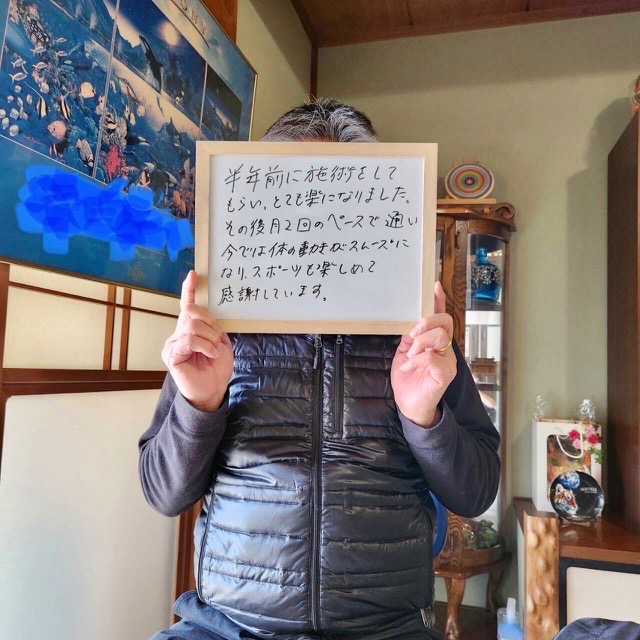 半年前に施術をして
もらい、とても楽になりました。
その後月2回のペースで通い
今では体の動きがスムーズに
なり、スポーツも楽しめて
感謝しています。